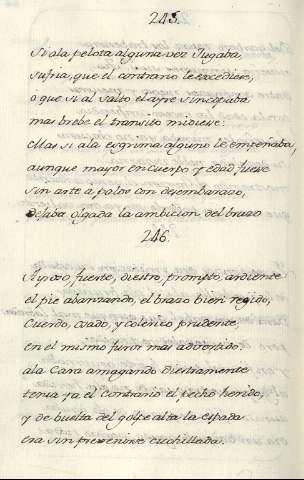 245.
Si ala pelota alguna vez Jugaba,
sufria, que el contrario le excediese,
o que si al salto el ayre
mas brebe el transito midiese:
Mas si ala esgrima alguno le empeñaba,
aunque mayor en cuerpo y edad fuese
sin arte a palos con desembarazo,
dejaba olgada la ambicion del brazo
246.
Ayroso, fuerte, diestro, prompto, ardiente
el pie abanzando, el brazo bien regido,
Cuerdo, osado, y colerico prudente
en el mismo furor mas advertido:
ala Cara amagando diestramente
tenia ya el contrario el pecho herido,
y de buelta del golpe alta la espada
era sin prevenirse cuchillada.